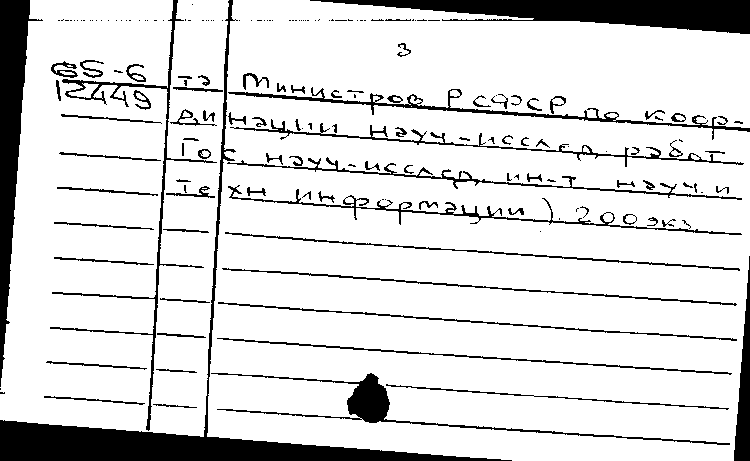 3
65-6 та Министров РСФСР по коор-
12449 динации науч.-исслед. работ
Гос. науч.-исслед. ин-т науч. и
техн информации). 200 экз.